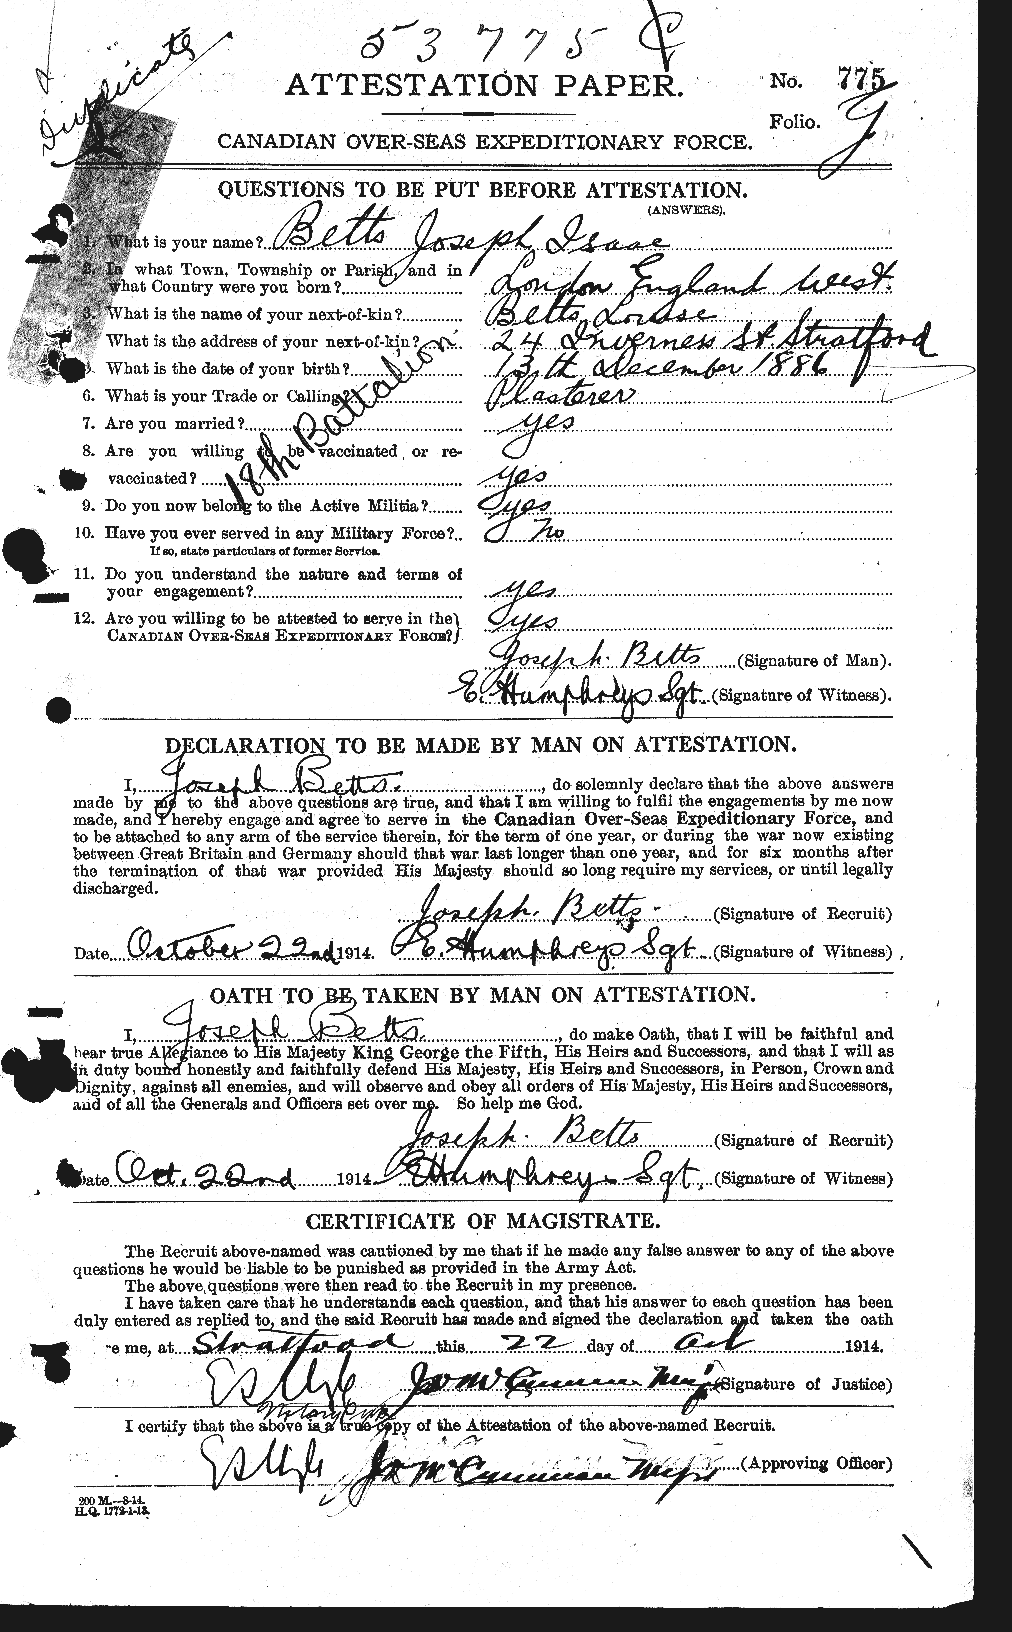 53775
Duplicate
ATTESTATION PAPER.
No. 775
Folio.
CANADIAN OVER-SEAS EXPEDITIONARY FORCE.
QUESTIONS TO BE PUT BEFORE ATTESTATION.
(ANSWERS).
1. What is your name? Betts Joseph Isaac
2. In what Town, Township or Parish, and in
what Country were you born? London England West.
3. What is the name of your next-of-kin? Betts Louise
What is the address of your next-of-kin? 24 Inverness St. Stratford
What is the date of your birth? 13th December 1886
6. What is your Trade or Calling? Plasterer
7. Are you married? yes
8. Are you willing to be vaccinated or re-
vaccinated? yes
18th Battalion
9. Do you now belong to the Active Militia? yes
10. Have you ever served in any Military Force? No
If so, state particulars of former Service.
11. Do you understand the nature and terms of
your engagement? yes
12. Are you willing to be attested to serve in the
CANADIAN OVER-SEAS EXPEDITIONARY FORCE? yes
Joseph Betts (Signature of Man).
E. Humphreys Sgt. (Signature of Witness).
DECLARATION TO BE MADE BY MAN ON ATTESTATION.
I, Joseph Betts, do solemnly declare that the above answers
made by me to the above questions are true, and that I am willing to fulfil the engagements by me now
made, and I hereby engage and agree to serve in the Canadian Over-Seas Expeditionary Force, and
to be attached to any arm of the service therein, for the term of one year, or during the war now existing
between Great Britain and Germany should that war last longer than one year, and for six months after
the termination of that war provided His Majesty should so long require my services, or until legally
discharged.
Joseph Betts (Signature of Recruit)
Date October 22nd 1914. E. Humphreys Sgt (Signature of Witness)
OATH TO BE TAKEN BY MAN ON ATTESTATION.
I, Joseph Betts, do make Oath, that I will be faithful and
bear true Allegiance to His Majesty King George the Fifth, His Heirs and Successors, and that I will as
in duty bound honestly and faithfully defend His Majesty, His Heirs and Successors, in Person, Crown and
Dignity, against all enemies, and will observe and obey all orders of His Majesty, His Heirs and Successors,
and of all the Generals and Officers set over me. So help me God.
Joseph Betts (Signature of Recruit)
Date Oct. 22nd 1914 E Humphreys Sgt. (Signature of Witness)
CERTIFICATE OF MAGISTRATE.
The Recruit above-named was cautioned by me that if he made any false answer to any of the above
questions he would be liable to be punished as provided in the Army Act.
The above questions were then read to the Recruit in my presence.
I have taken care that he understands each question, and that his answer to each question has been
duly entered as replied to, and the said Recruit has made and signed the declaration and taken the oath
e me, at Stratford this 22 day of Oct 1914.
(Signature of Justice)
I certify that the above is a true copy of the Attestation of the above-named Recruit.
(Approving Officer)
200 M.—8-14.
H.Q. 1772-1-13.